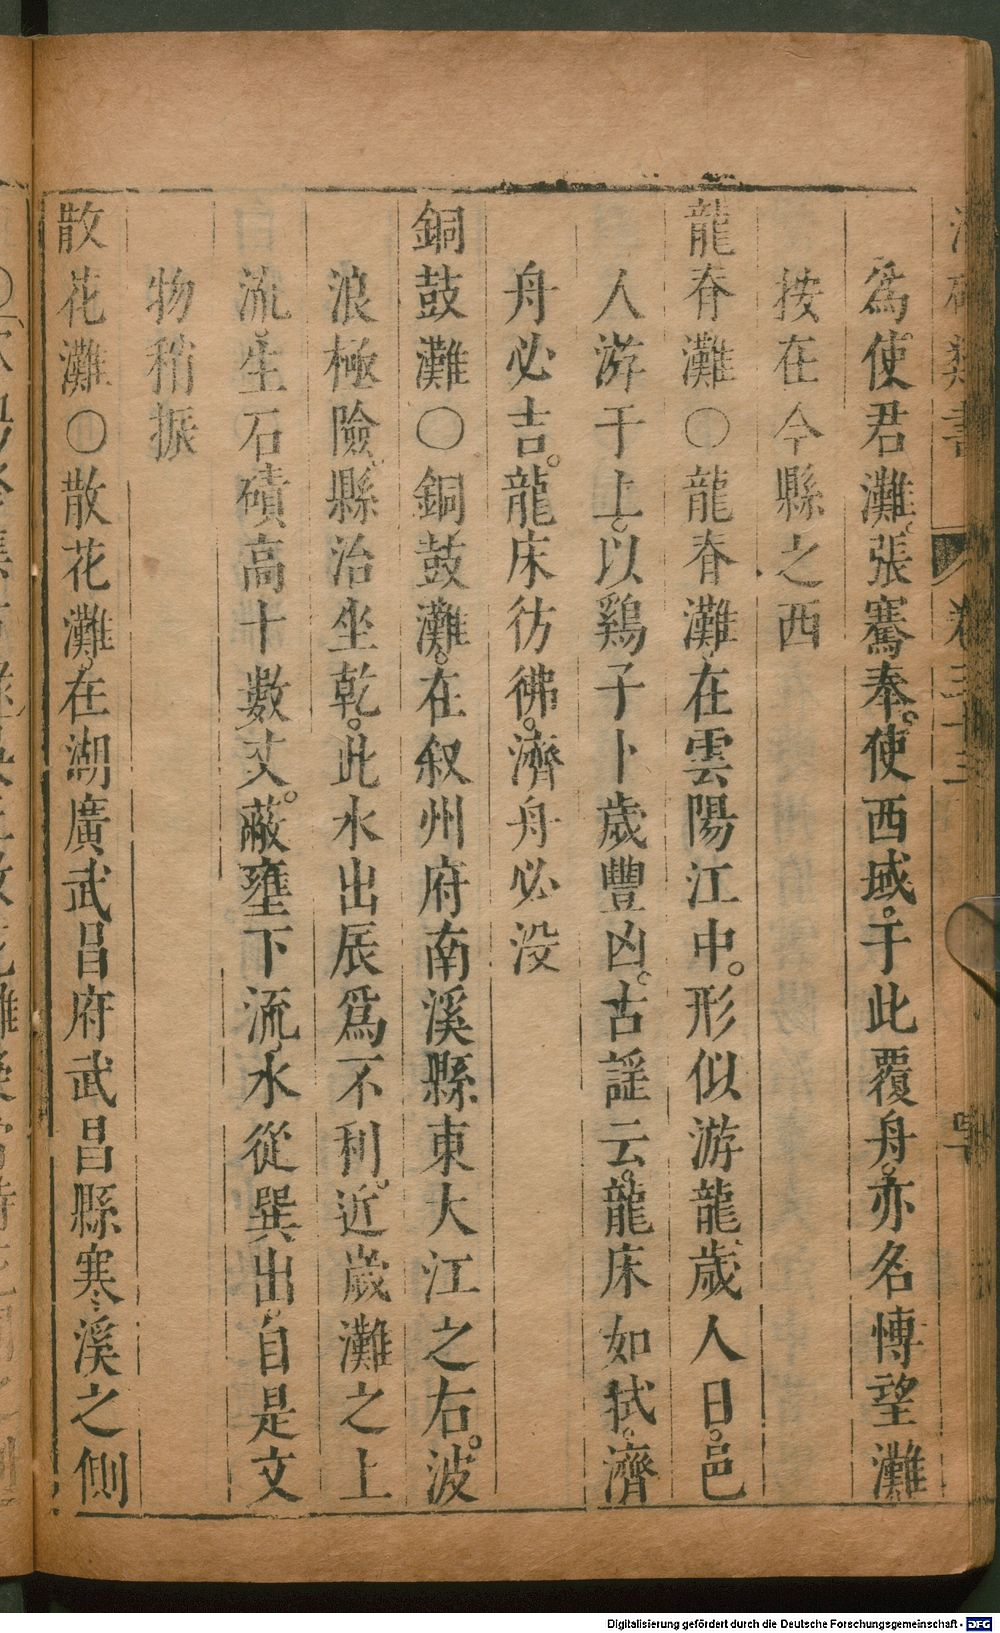 為使君灘張騫奉使西域于此覆舟亦名博望灘
按在今縣之西
龍脊灘○龍脊灘在雲陽江中形似游龍歲人日邑
人游于上以鷄子卜歲豐凶古謡云龍床如拭濟
舟必吉龍床彷彿濟舟必没
銅鼓灘○銅鼓灘在叙州府南溪縣東大江之右波
浪極險縣治坐乾此水出辰爲不利近歲灘之上
流生石磧高十數丈蔽壅下流水從巽出自是文
物稍振
散花灘○散花灘在湖廣武昌府武昌縣寒溪之側
Digitalisierung gefördert durch die Deutsche Forschungsgemeinschaft - DFG